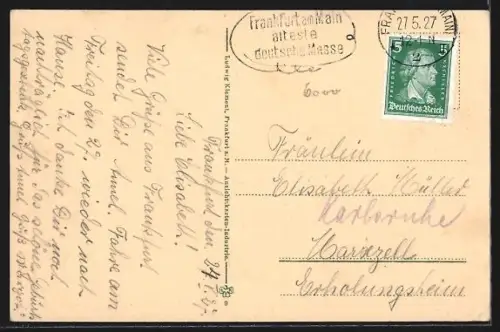 Frankfurt am Main
älteste
deutsche Messe
FRANKFURT (MAIN)
27.5.27
12-1 N
2
5 15
Deutsches Reich
6000
Frankfurt den 27.
Liebe Elisabeth!
Viele Grüße aus Frankfurt
sendet Dir Annel. Fahre am
Freitag den 27. wieder nach
Hause. Ich danke Dir noch
nachträglich für
Ludwig Klement, Frankfurt a. M. - Ansichtskarten-Industrie.
Fräulein
Elisabeth Müller
Karlsruhe
Mariazell
Erholungsheim